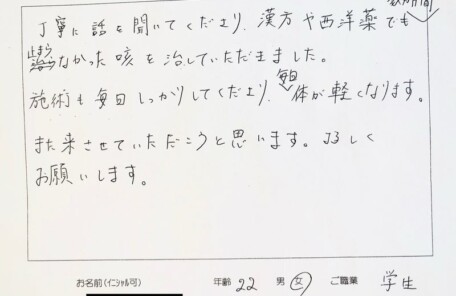 丁寧に話を聞いてくださり、漢方や西洋薬でも
止まらなかった咳を治していただきました。
施術も毎回しっかりしてくださり、毎回体が軽くなります。
また来させていただこうと思います。よろしく
お願いします。
お名前(イニシャル可) 年齢 22 男 女 ご職業 学生